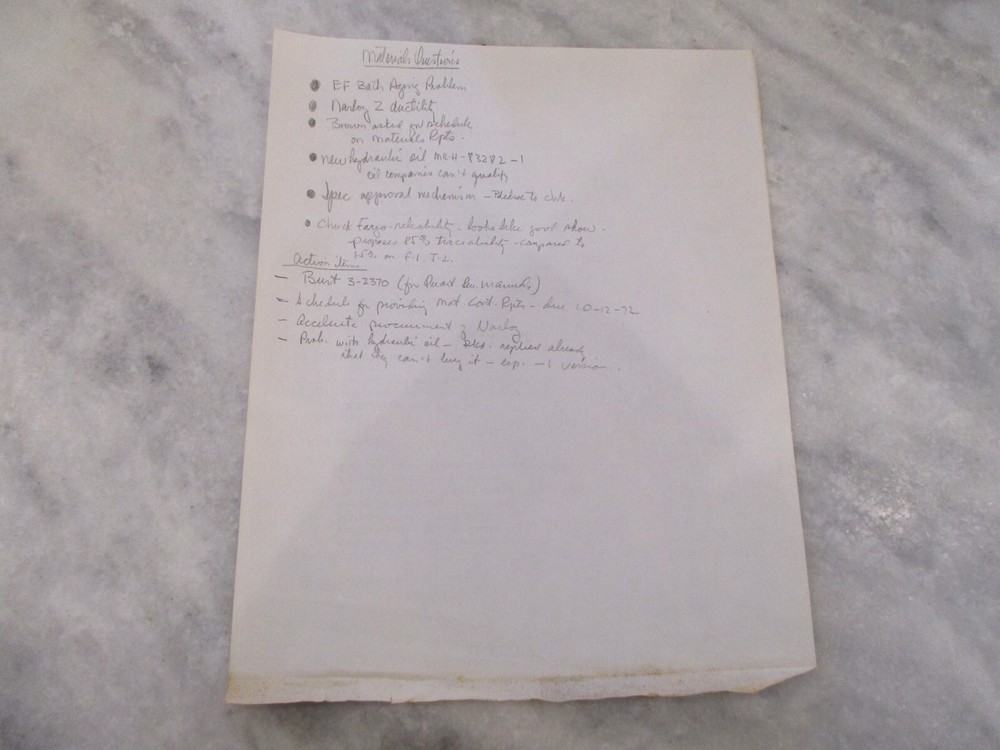 Materials Questions
EF Bath Aging Problem
Narloy Z ductility
Brown asked for schedule
on materials Rpts.
new hydraulic oil MIL-H-83282-1
oil companies can't qualify
Spec approval mechanism -
Chuck Fargo - reliability - looks like good show -
proposes 85% traceability - compared to
on F-1, J-2.
Action items
Burt 3-2370 (for
Schedule for providing Mat. Cont. Rpts - due 10-12-72
Accelerate procurement of Narloy
Prob. with hydraulic oil - replied already
that they can't buy it - esp. -1 version.